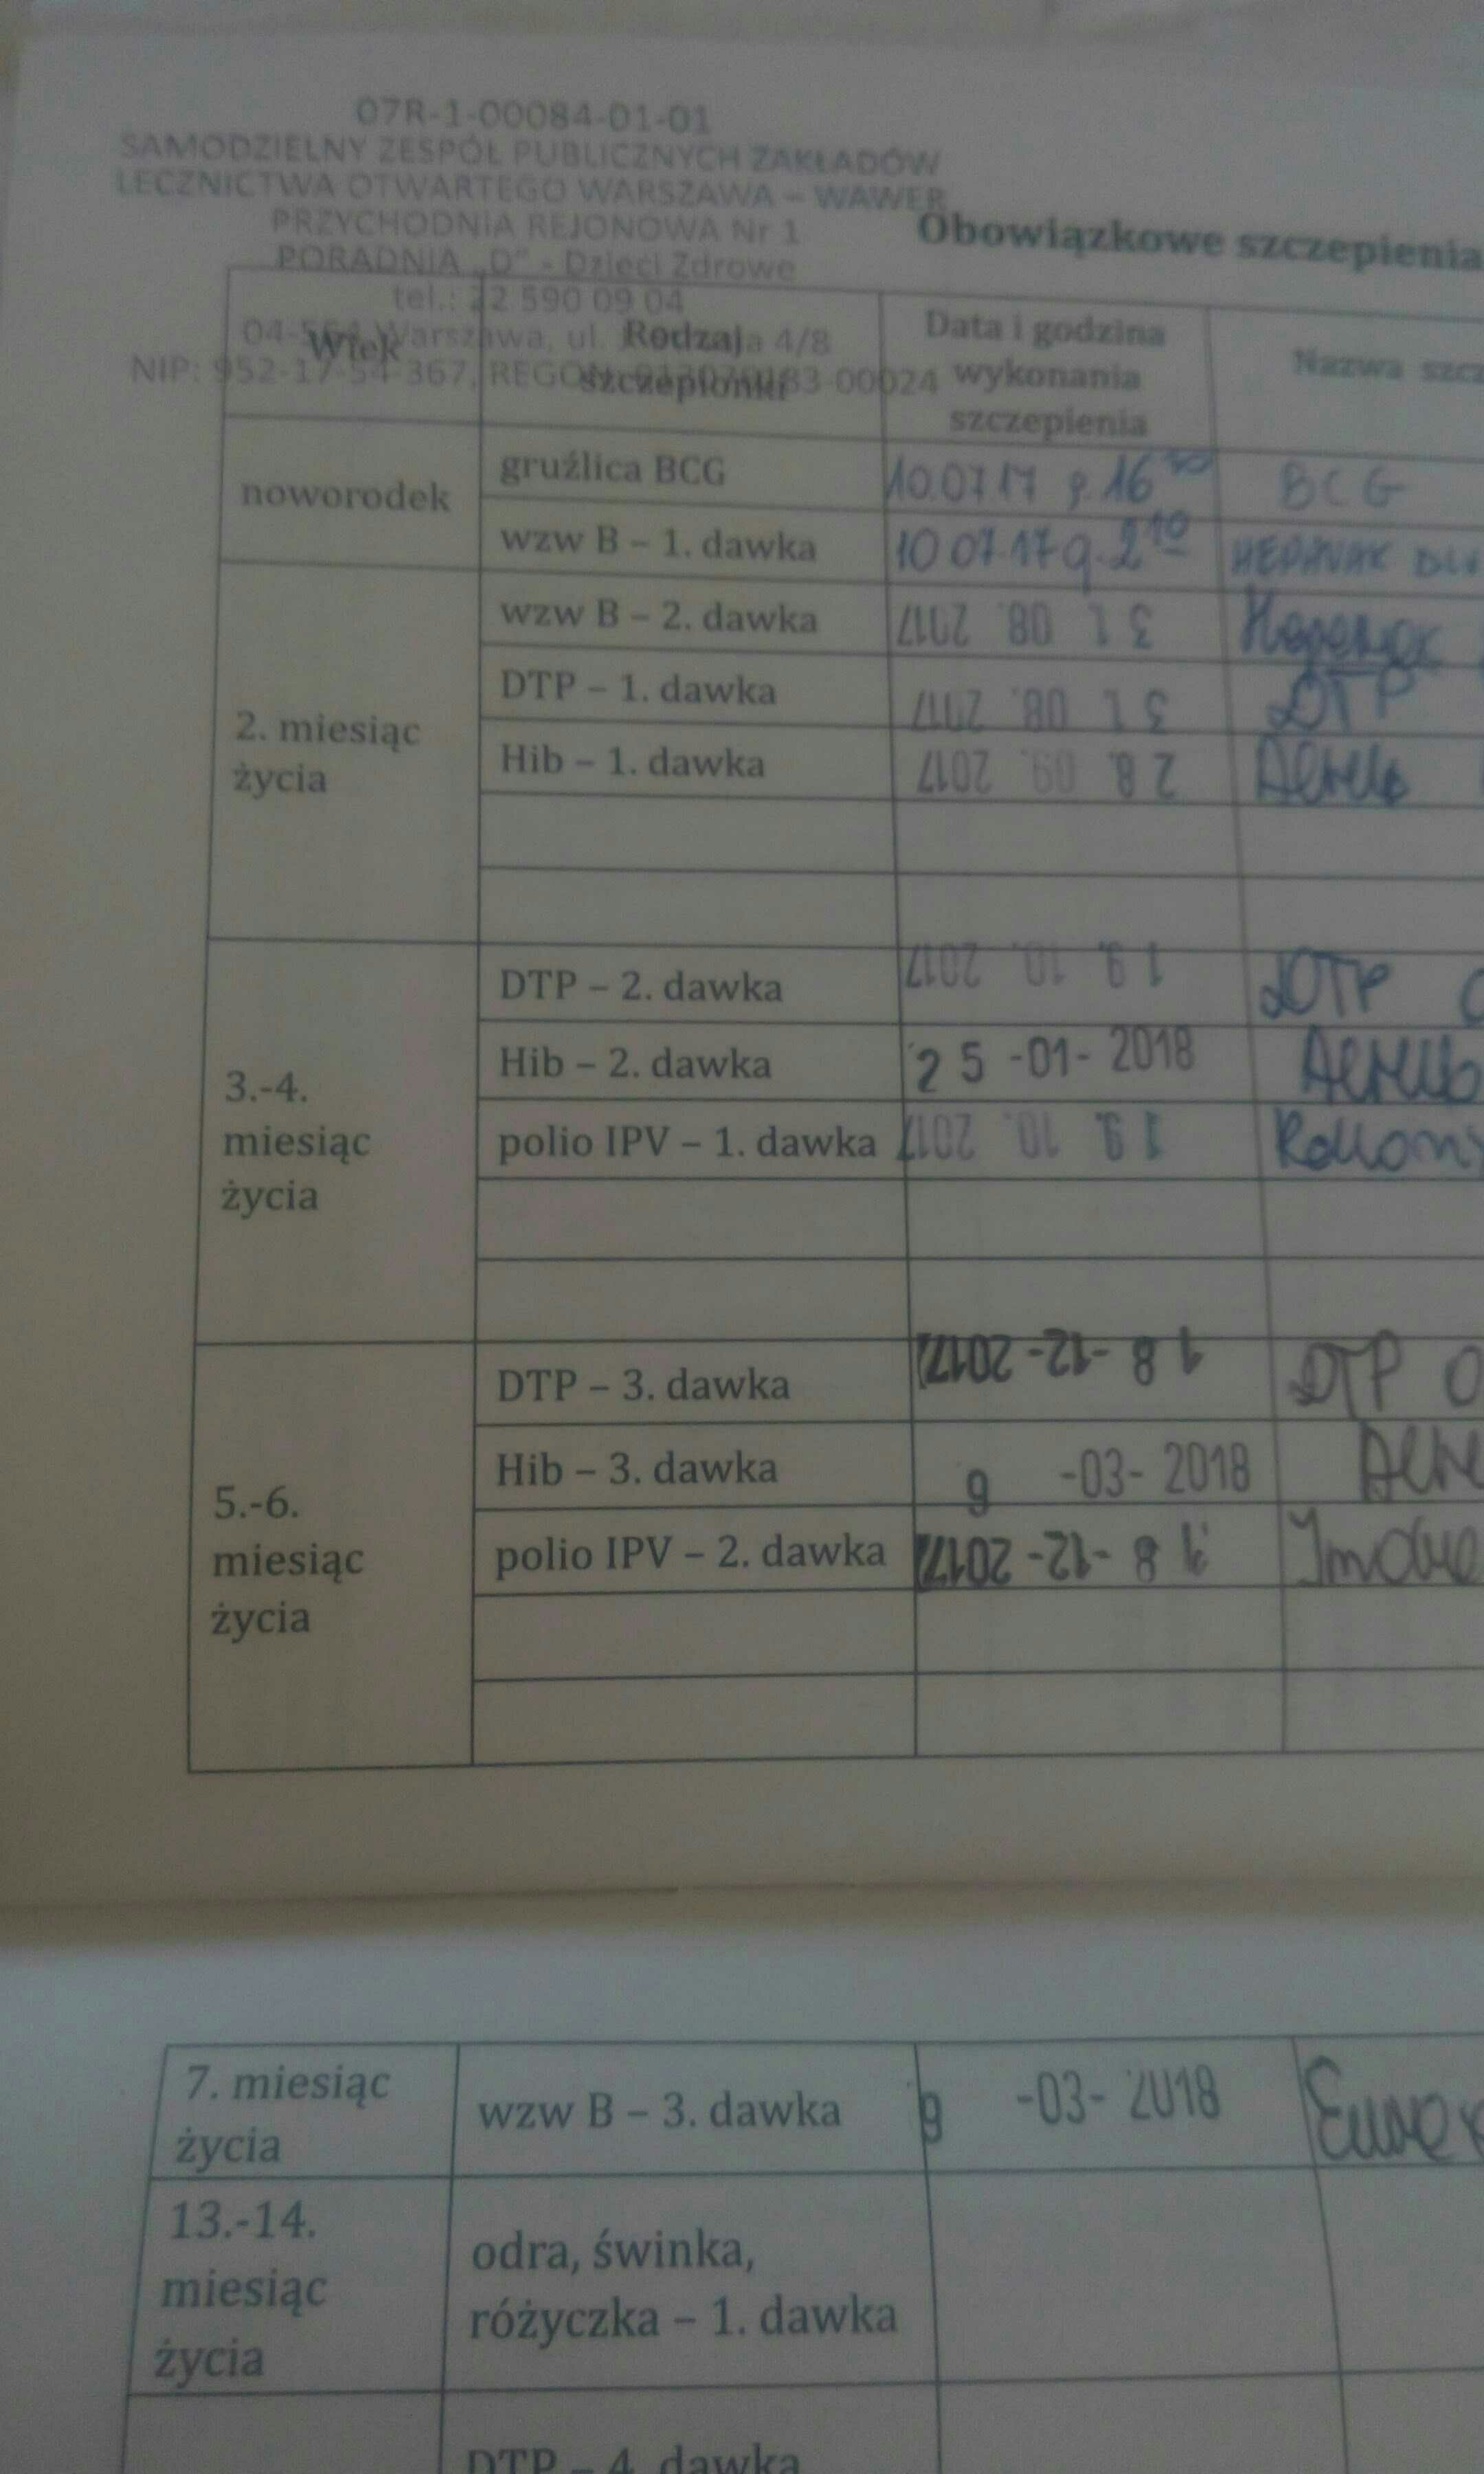 07R-1-00084-01-01
SAMODZIELNY ZESPÓŁ PUBLICZNYCH ZAKŁADÓW
LECZNICTWA OTWARTEGO WARSZAWA – WAWER
PRZYCHODNIA REJONOWA Nr 1
PORADNIA „D" - Dzieci Zdrowe
tel.: 22 590 09 04
04-564 Warszawa, ul. 4/8
NIP: 952-17-54-367, REGON: 00024
Obowiązkowe szczepienia
Wiek
Rodzaj szczepionki
Data i godzina wykonania szczepienia
Nazwa szcz
noworodek
gruźlica BCG
10.07.17 g.16
BCG
wzw B – 1. dawka
10 07.17 g.2 10
2. miesiąc życia
wzw B – 2. dawka
31. 08. 2017
DTP – 1. dawka
31. 08. 2017
DTP
Hib – 1. dawka
28. 09. 2017
3.-4. miesiąc życia
DTP – 2. dawka
19. 10. 2017
DTP
Hib – 2. dawka
25 -01- 2018
polio IPV – 1. dawka
19. 10. 2017
5.-6. miesiąc życia
DTP – 3. dawka
18 -12- 2017
DTP
Hib – 3. dawka
-03- 2018
polio IPV – 2. dawka
18 -12- 2017
7. miesiąc życia
wzw B – 3. dawka
-03- 2018
13.-14. miesiąc życia
odra, świnka, różyczka – 1. dawka
DTP – 4. dawka